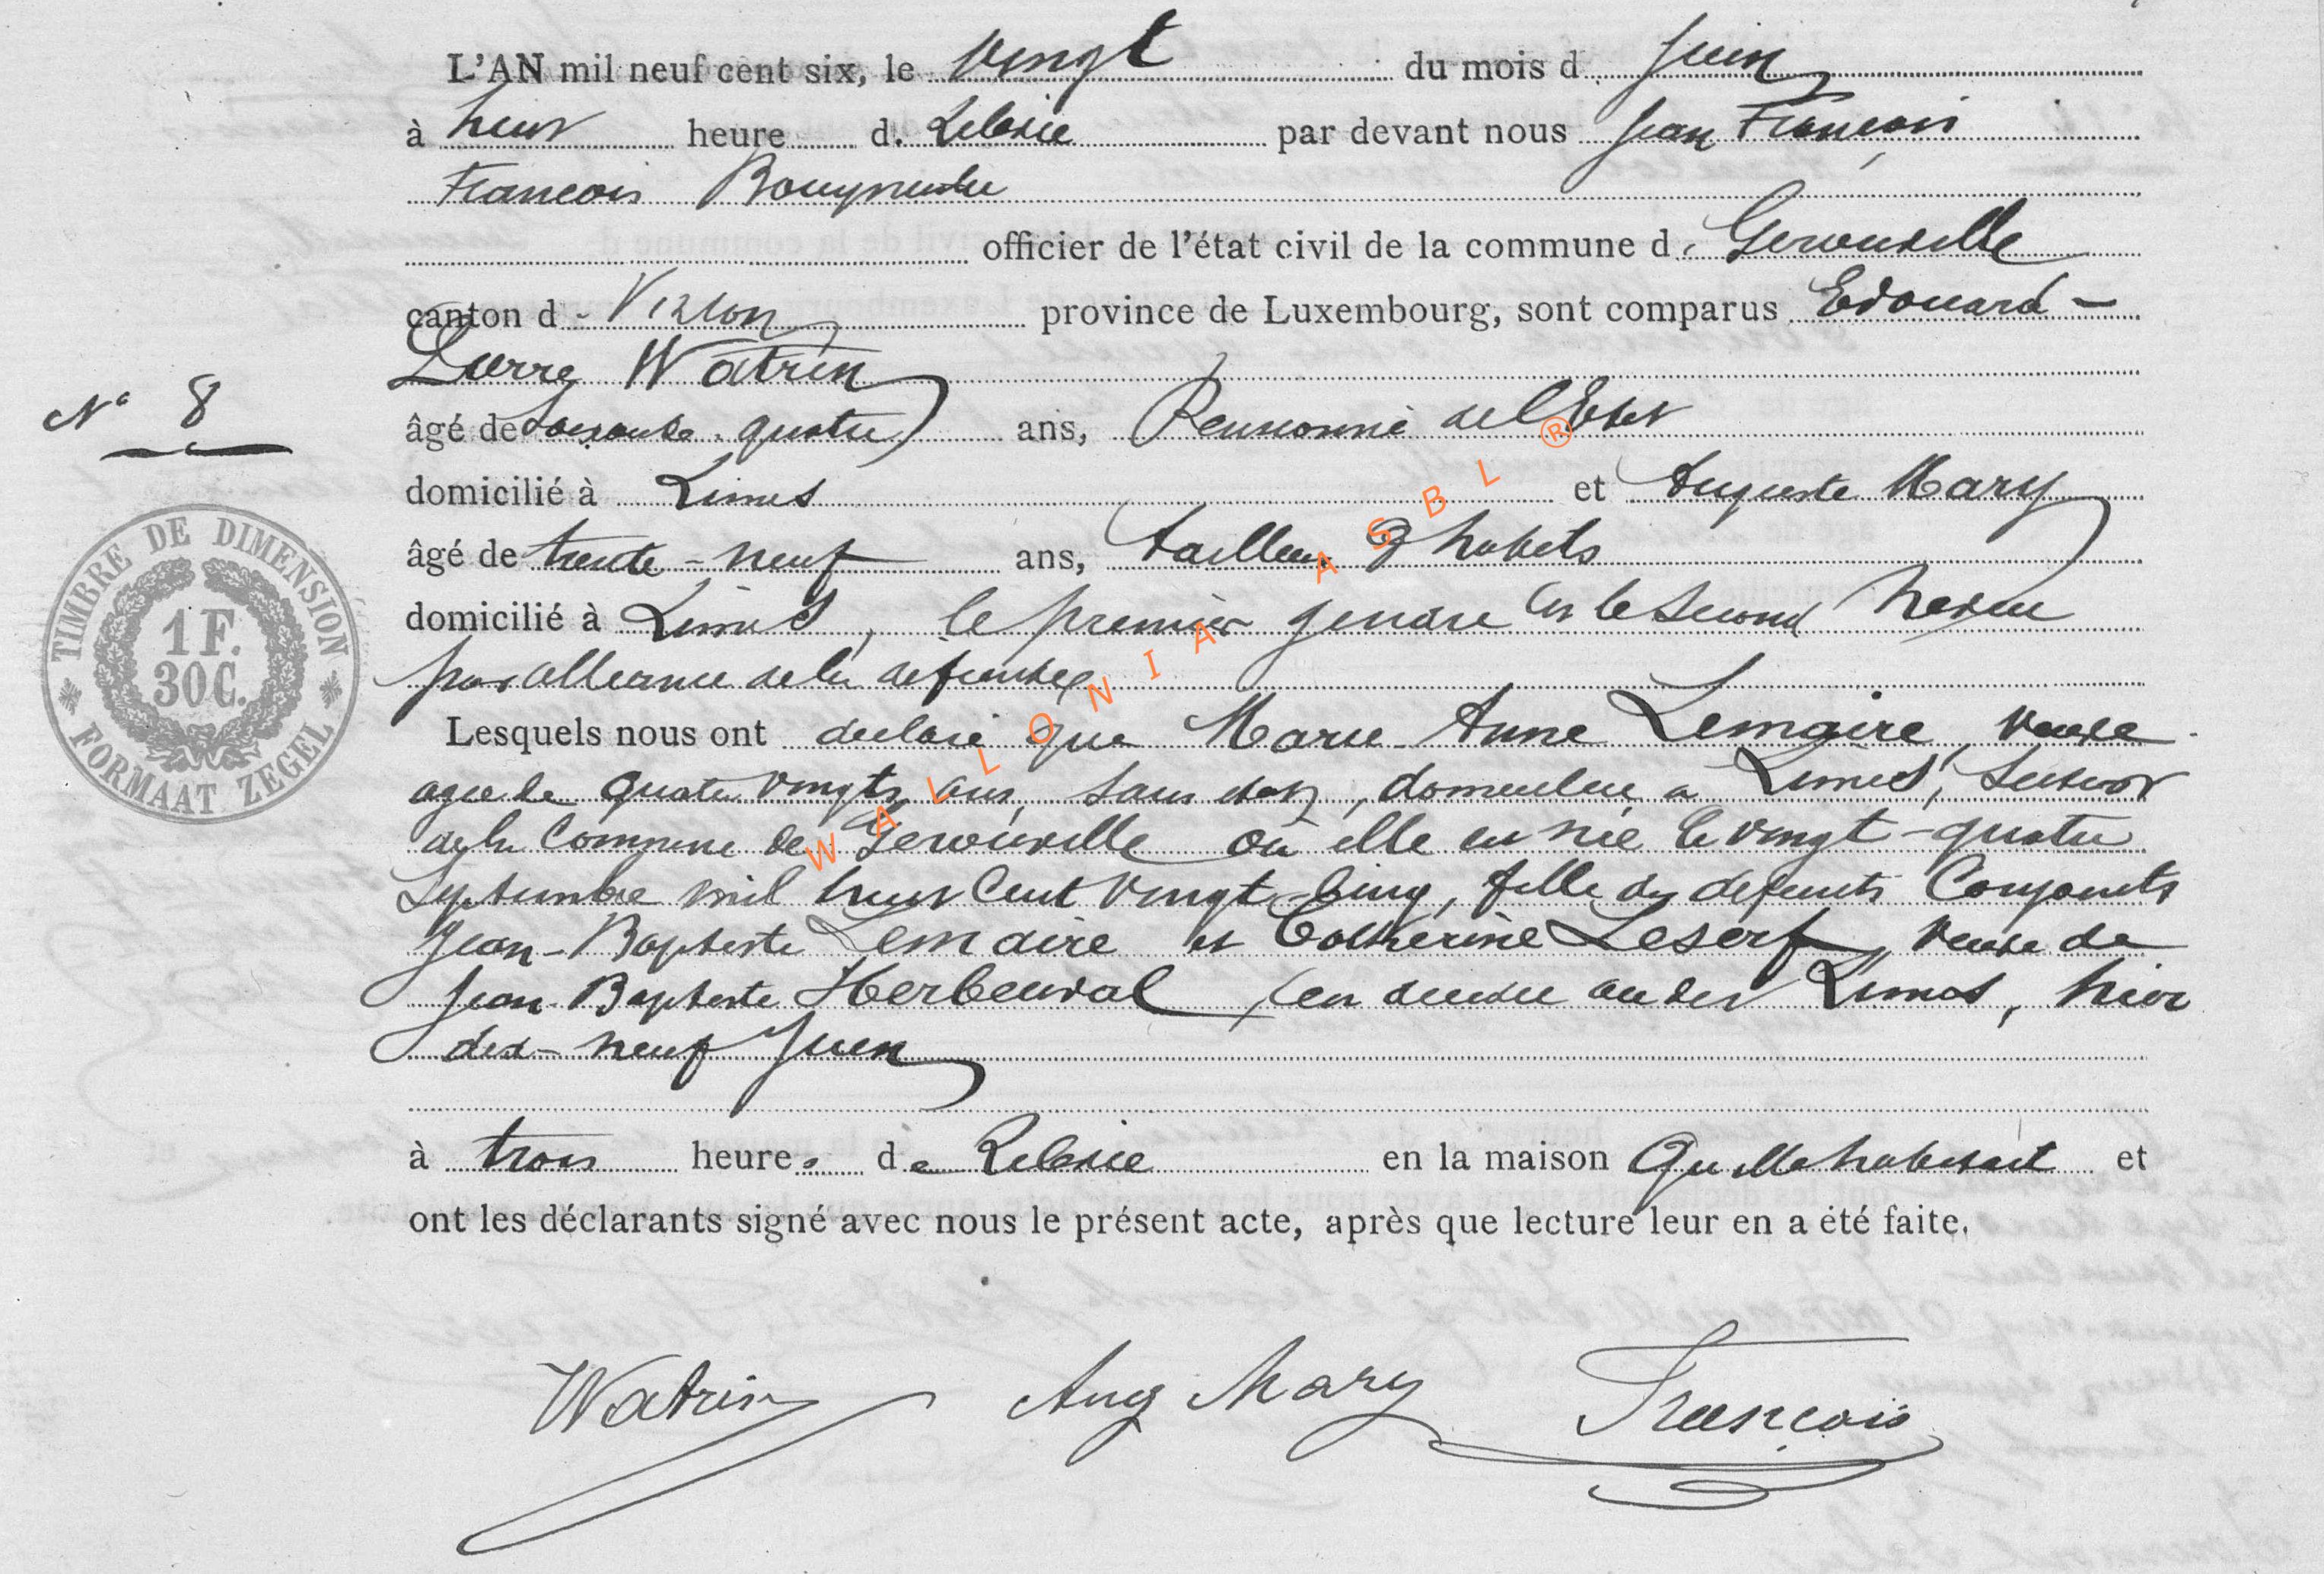 L'AN mil neuf cent six, le vingt du mois d Juin
à huit heure d. Relevée par devant nous Jean François
François Bourgmestre
officier de l'état civil de la commune d. Gerouville
canton d. Virton province de Luxembourg, sont comparus Edouard-
Pierre Watrin
N° 8
âgé de soixante-quatre ans, Pensionné de l'Etat
domicilié à Limes et Auguste Mary
âgé de trente-neuf ans, tailleur d'habits
domicilié à Limes, le premier gendre et le second neveu
par alliance de la défunte
Lesquels nous ont déclaré que Marie Anne Lemaire, veuve
agée de quatre vingts ans, sans état, domiciliée à Limes, section
de la Commune de Gerouville où elle est née le vingt-quatre
Septembre mil huit Cent vingt-Cinq, fille des défunts Conjoints
Jean-Baptiste Lemaire et Catherine Leserf, veuve de
Jean-Baptiste Herbeuval, est décédée audit Limes, hier
dix-neuf Juin
à trois heures de Relevée en la maison qu'elle habitait et
ont les déclarants signé avec nous le présent acte, après que lecture leur en a été faite.
Watrin Aug Mary François
TIMBRE DE DIMENSION
1 F.
30 C.
FORMAAT ZEGEL
WALLONIA ASBL ®